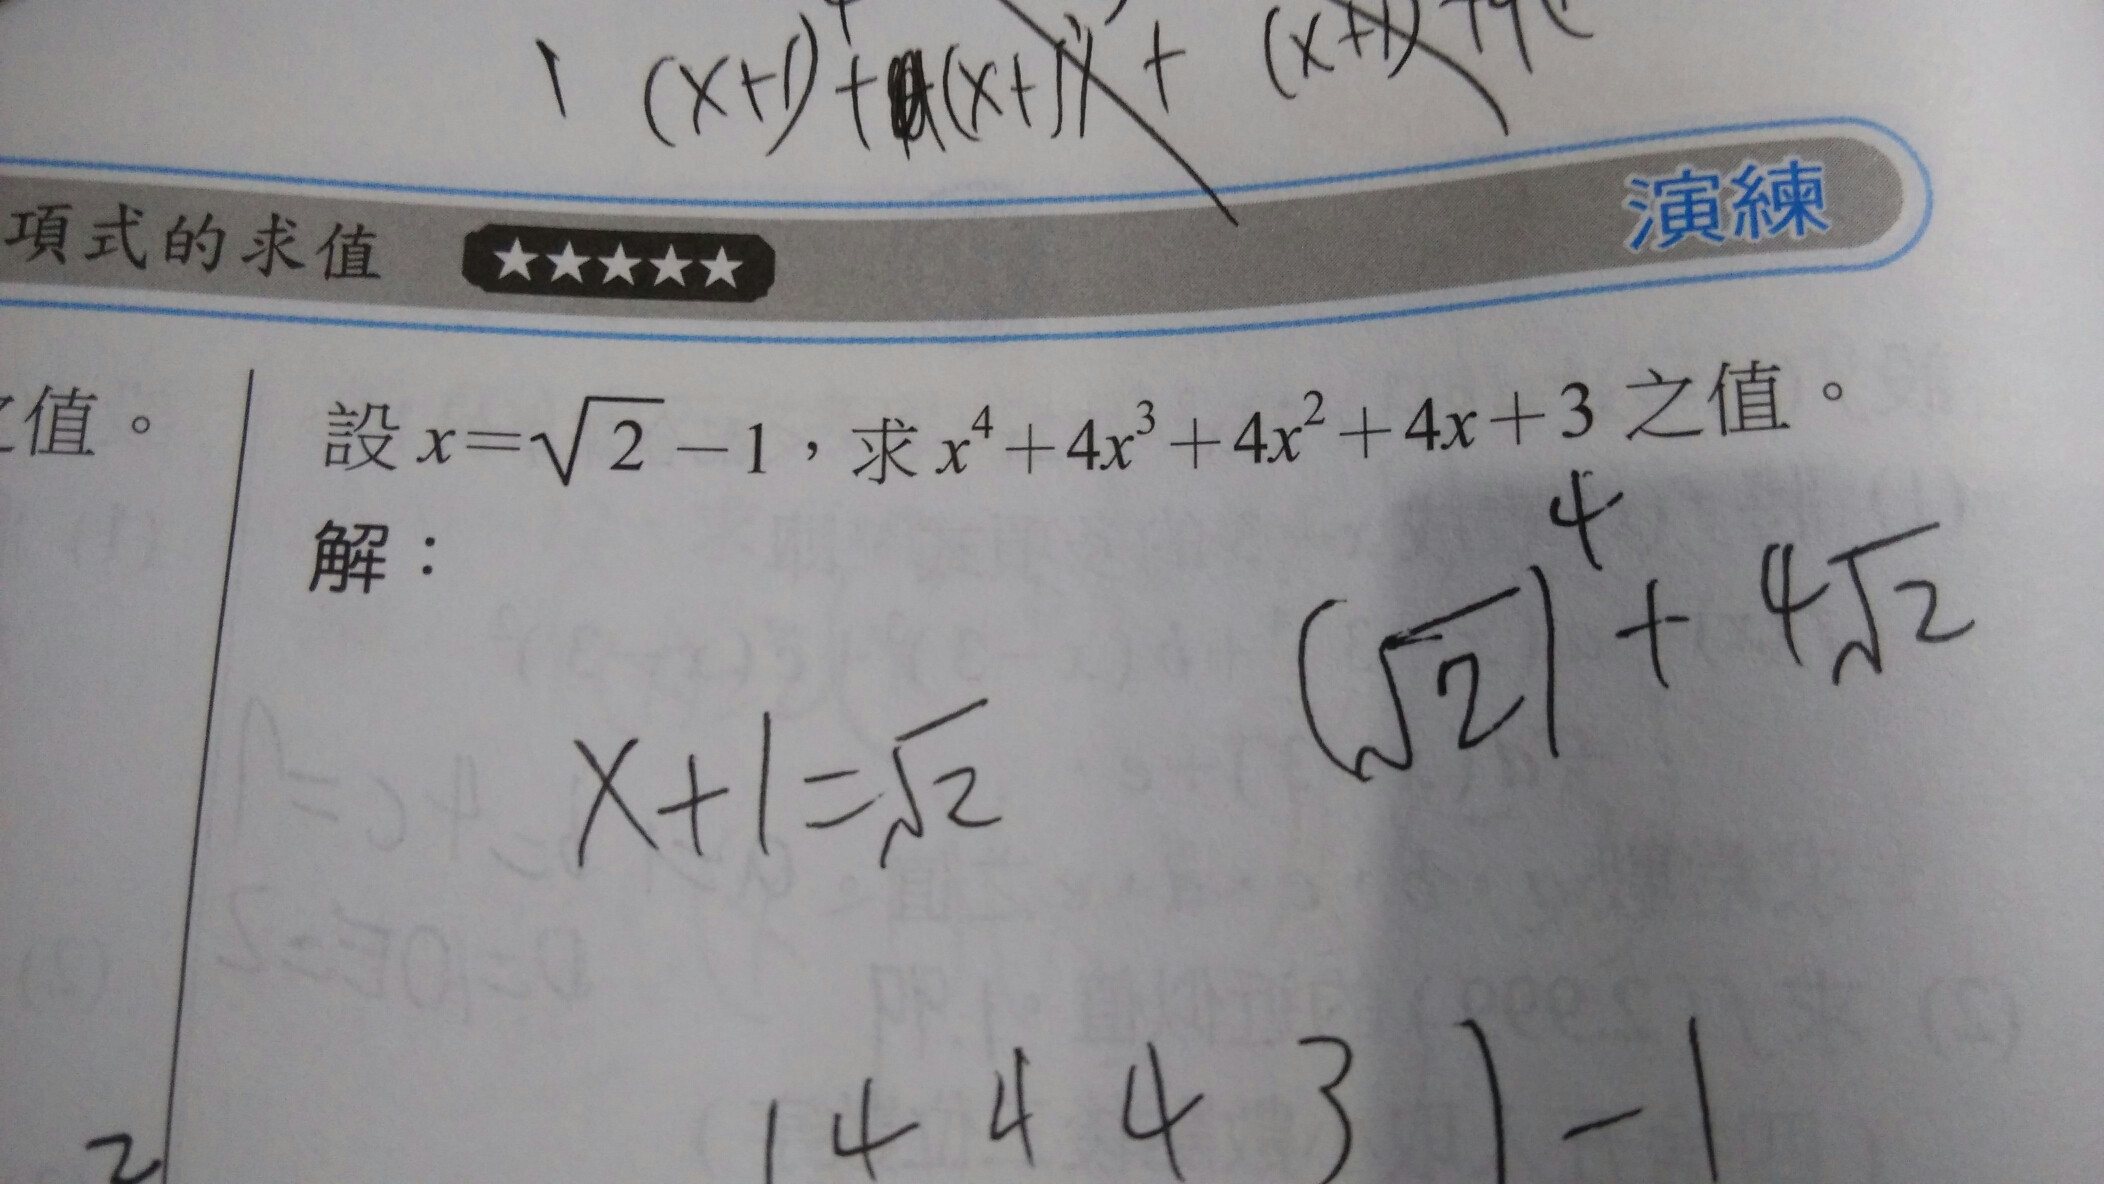 (x+1)⁴+(x+1)+ (x+1)
項式的求值 ★★★★★ 演練
值。
設 x=√2−1，求 x⁴+4x³+4x²+4x+3 之值。
解：
(√2)⁴ + 4√2
x+1=√2
1 4 4 4 3 ) −1
2